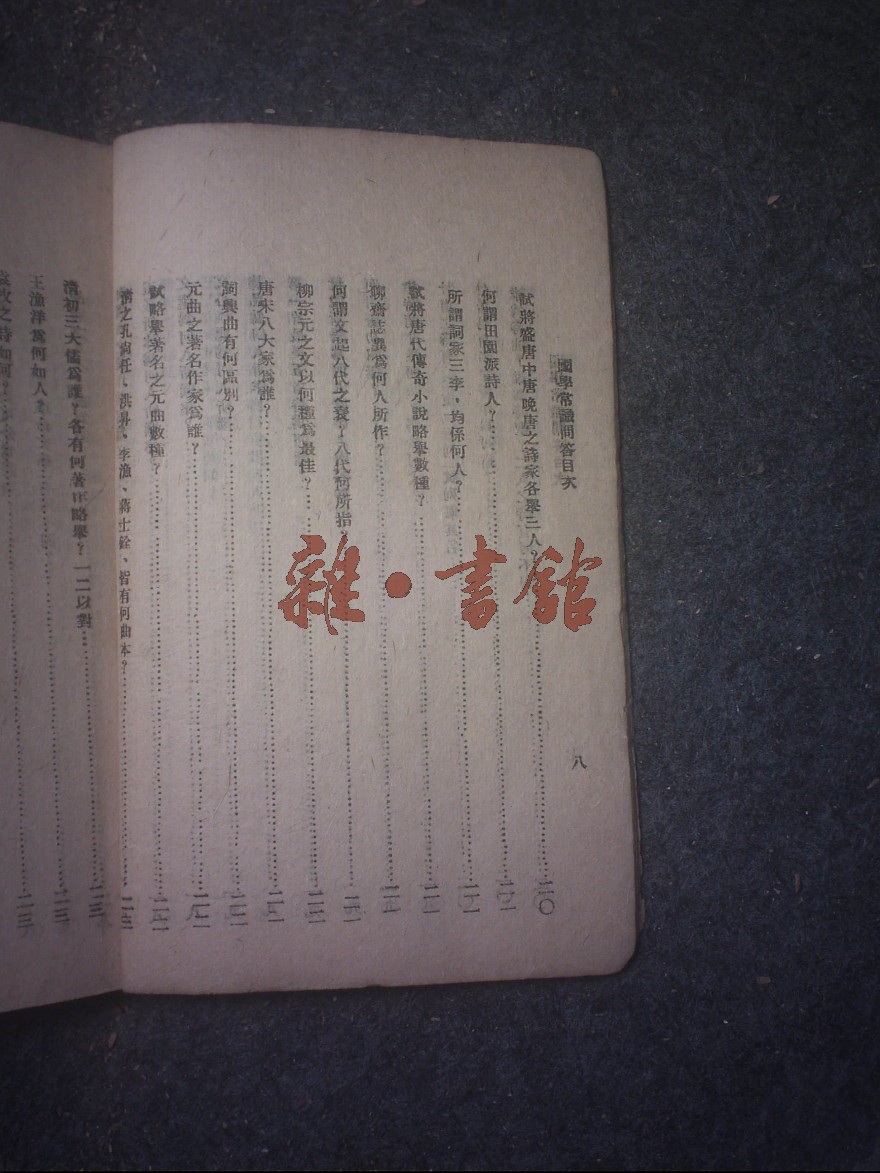 國學常識問答目次
八
試將盛唐中唐晚唐之詩家各舉二人？……二〇
何謂田園派詩人？……二一
所謂詞家三李，均係何人？……二一
試將唐代傳奇小說略舉數種？……二一
聊齋誌異爲何人所作？……二一
何謂文起八代之衰？八代何所指……二一
柳宗元之文以何種爲最佳？……二二
唐宋八大家爲誰？……二二
詞與曲有何區別？……二二
元曲之著名作家爲誰？……二二
試略舉著名之元曲數種？……二二
清之孔尙任、洪昇、李漁、蔣士銓、皆有何曲本？……二三
清初三大儒爲誰？各有何著作略舉？一二以對……二三
王漁洋爲何如人？……二三
之詩如何？……二三
雜·書館